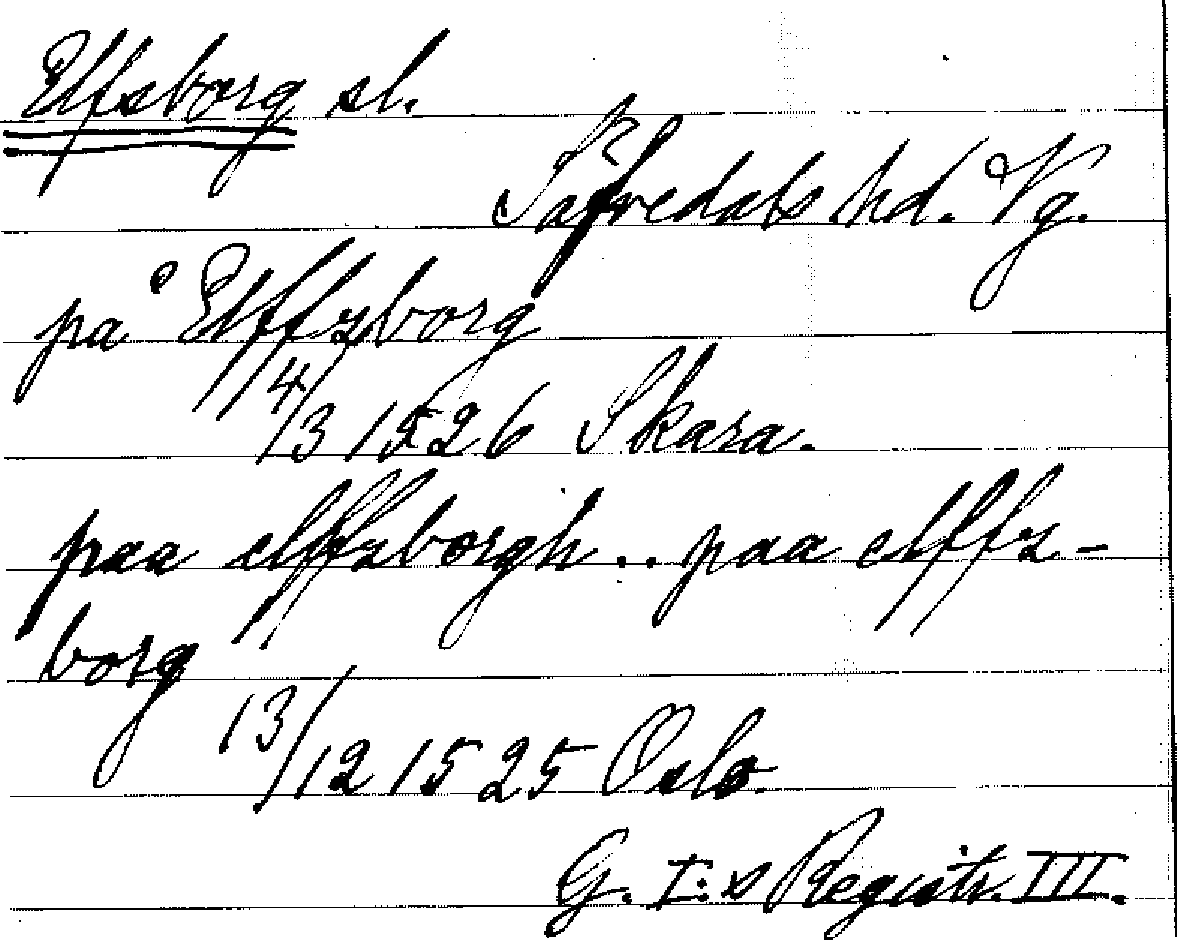 Elfsborg sl.
Säfvedals hd. Vg.
på Elffzborg
14/3 1526 Skara.
paa elffzborgh .. paa elffz-
borg
13/12 1525 Oslo.
G. I:s Registr. III.